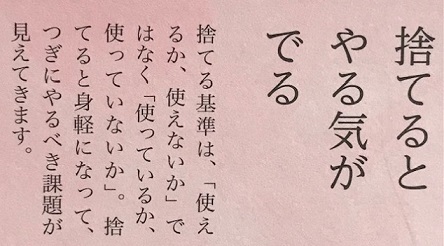 捨てると
やる気が
でる
捨てる基準は、「使え
るか、使えないか」で
はなく「使っているか、
使っていないか」。捨
てると身軽になって、
つぎにやるべき課題が
見えてきます。